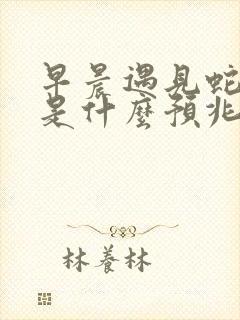 早晨遇見蛇
是什麼預兆
林養林